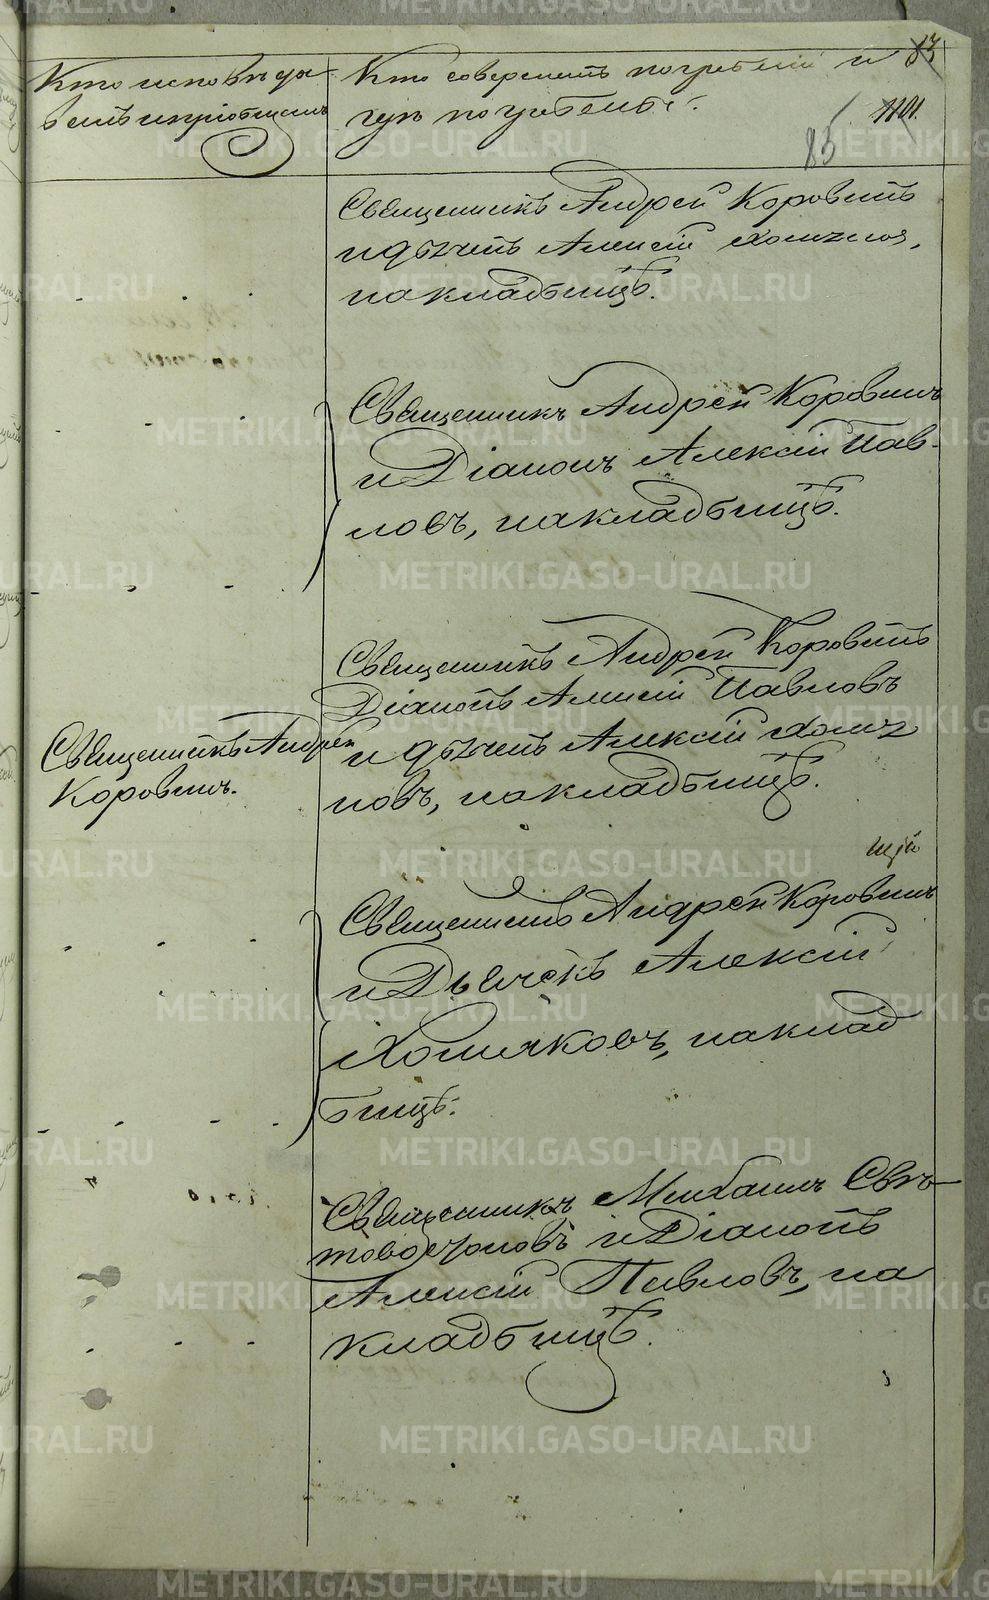 Кто исповѣды
валъ и пріобщалъ
Кто совершалъ погребеніе и
гдѣ погребены.
83
85
Священникъ Андрей Коровинъ
и дьячекъ Алексій Холмо
на кладбищѣ.
Священникъ Андрей Коровинъ
и Діаконъ Алексій Пав-
ловъ, на кладбищѣ.
Священникъ Андрей Коровинъ
Діаконъ Алексій Павловъ
и дьячекъ Алексій
на кладбищѣ.
Священникъ Андрей
Коровинъ.
Священникъ Андрей Коровинъ
и Дьячекъ Алексій
Хомяковъ, на клад
бищѣ.
Священникъ Михаилъ Свѣ-
и Діаконъ
Алексій Павловъ, на
кладбищѣ.
METRIKI.GASO-URAL.RU